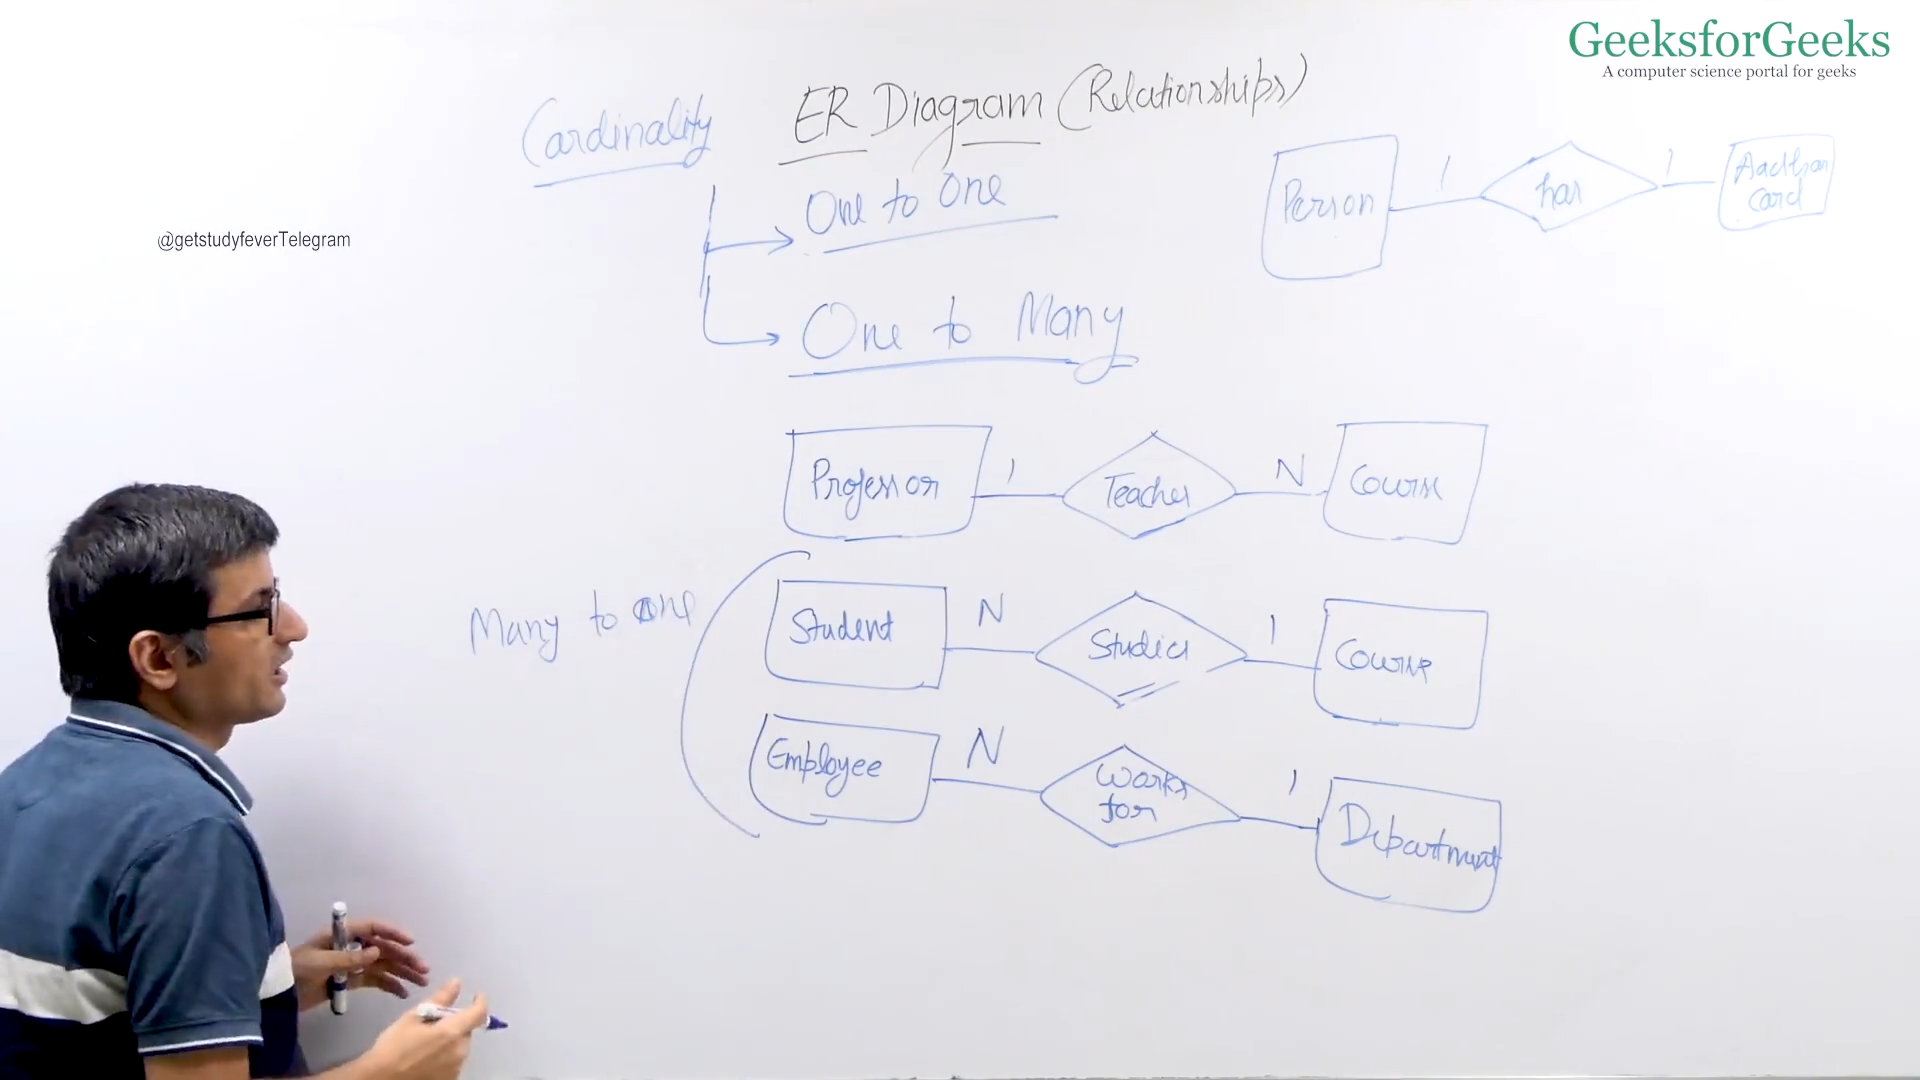 GeeksforGeeks
A computer science portal for geeks
Cardinality
ER Diagram (Relationships)
One to One
Person 1 has 1 Aadhar
Card
@getstudyfeverTelegram
One to Many
Professor 1 Teaches N Course
Many to One
Student N Studies 1 Course
Employee N Works
for 1 Department